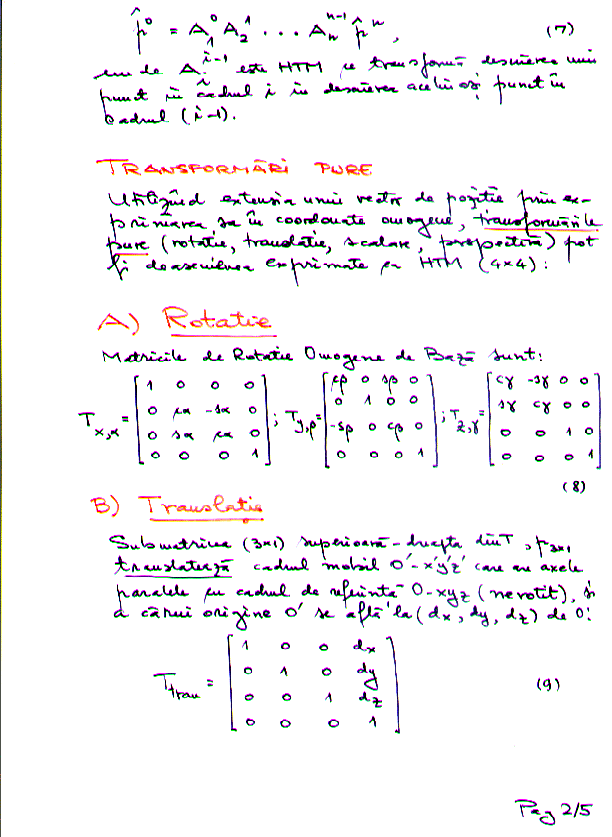 p̂⁰ = A₁⁰ A₂¹ . . . Aₙⁿ⁻¹ p̂ⁿ, (7)
unde Aᵢⁱ⁻¹ este HTM ce transformă descrierea unui
punct în cadrul i în descrierea aceluiași punct în
cadrul (i-1).
TRANSFORMĂRI PURE
Utilizînd extensia unui vector de poziție prin ex-
primarea sa în coordonate omogene, transformările
pure (rotație, translație, scalare, perspectivă) pot
fi deasemenea exprimate cu HTM (4×4):
A) Rotație
Matricile de Rotație Omogene de Bază sunt:
1 0 0 0 cβ 0 sβ 0 cγ -sγ 0 0
0 cα -sα 0 0 1 0 0 sγ cγ 0 0
T x,α = ; T y,β = ; T z,γ =
0 sα cα 0 -sβ 0 cβ 0 0 0 1 0
0 0 0 1 0 0 0 1 0 0 0 1
(8)
B) Translație
Submatricea (3×1) superioară-dreapta din T, p₃ₓ₁
translatează cadrul mobil O'-x'y'z' care are axele
paralele cu cadrul de referință O-xyz (nerotit), și
a cărui origine O' se află la (dx, dy, dz) de O:
1 0 0 dx
0 1 0 dy
T tran = (9)
0 0 1 dz
0 0 0 1
Pag 2/5